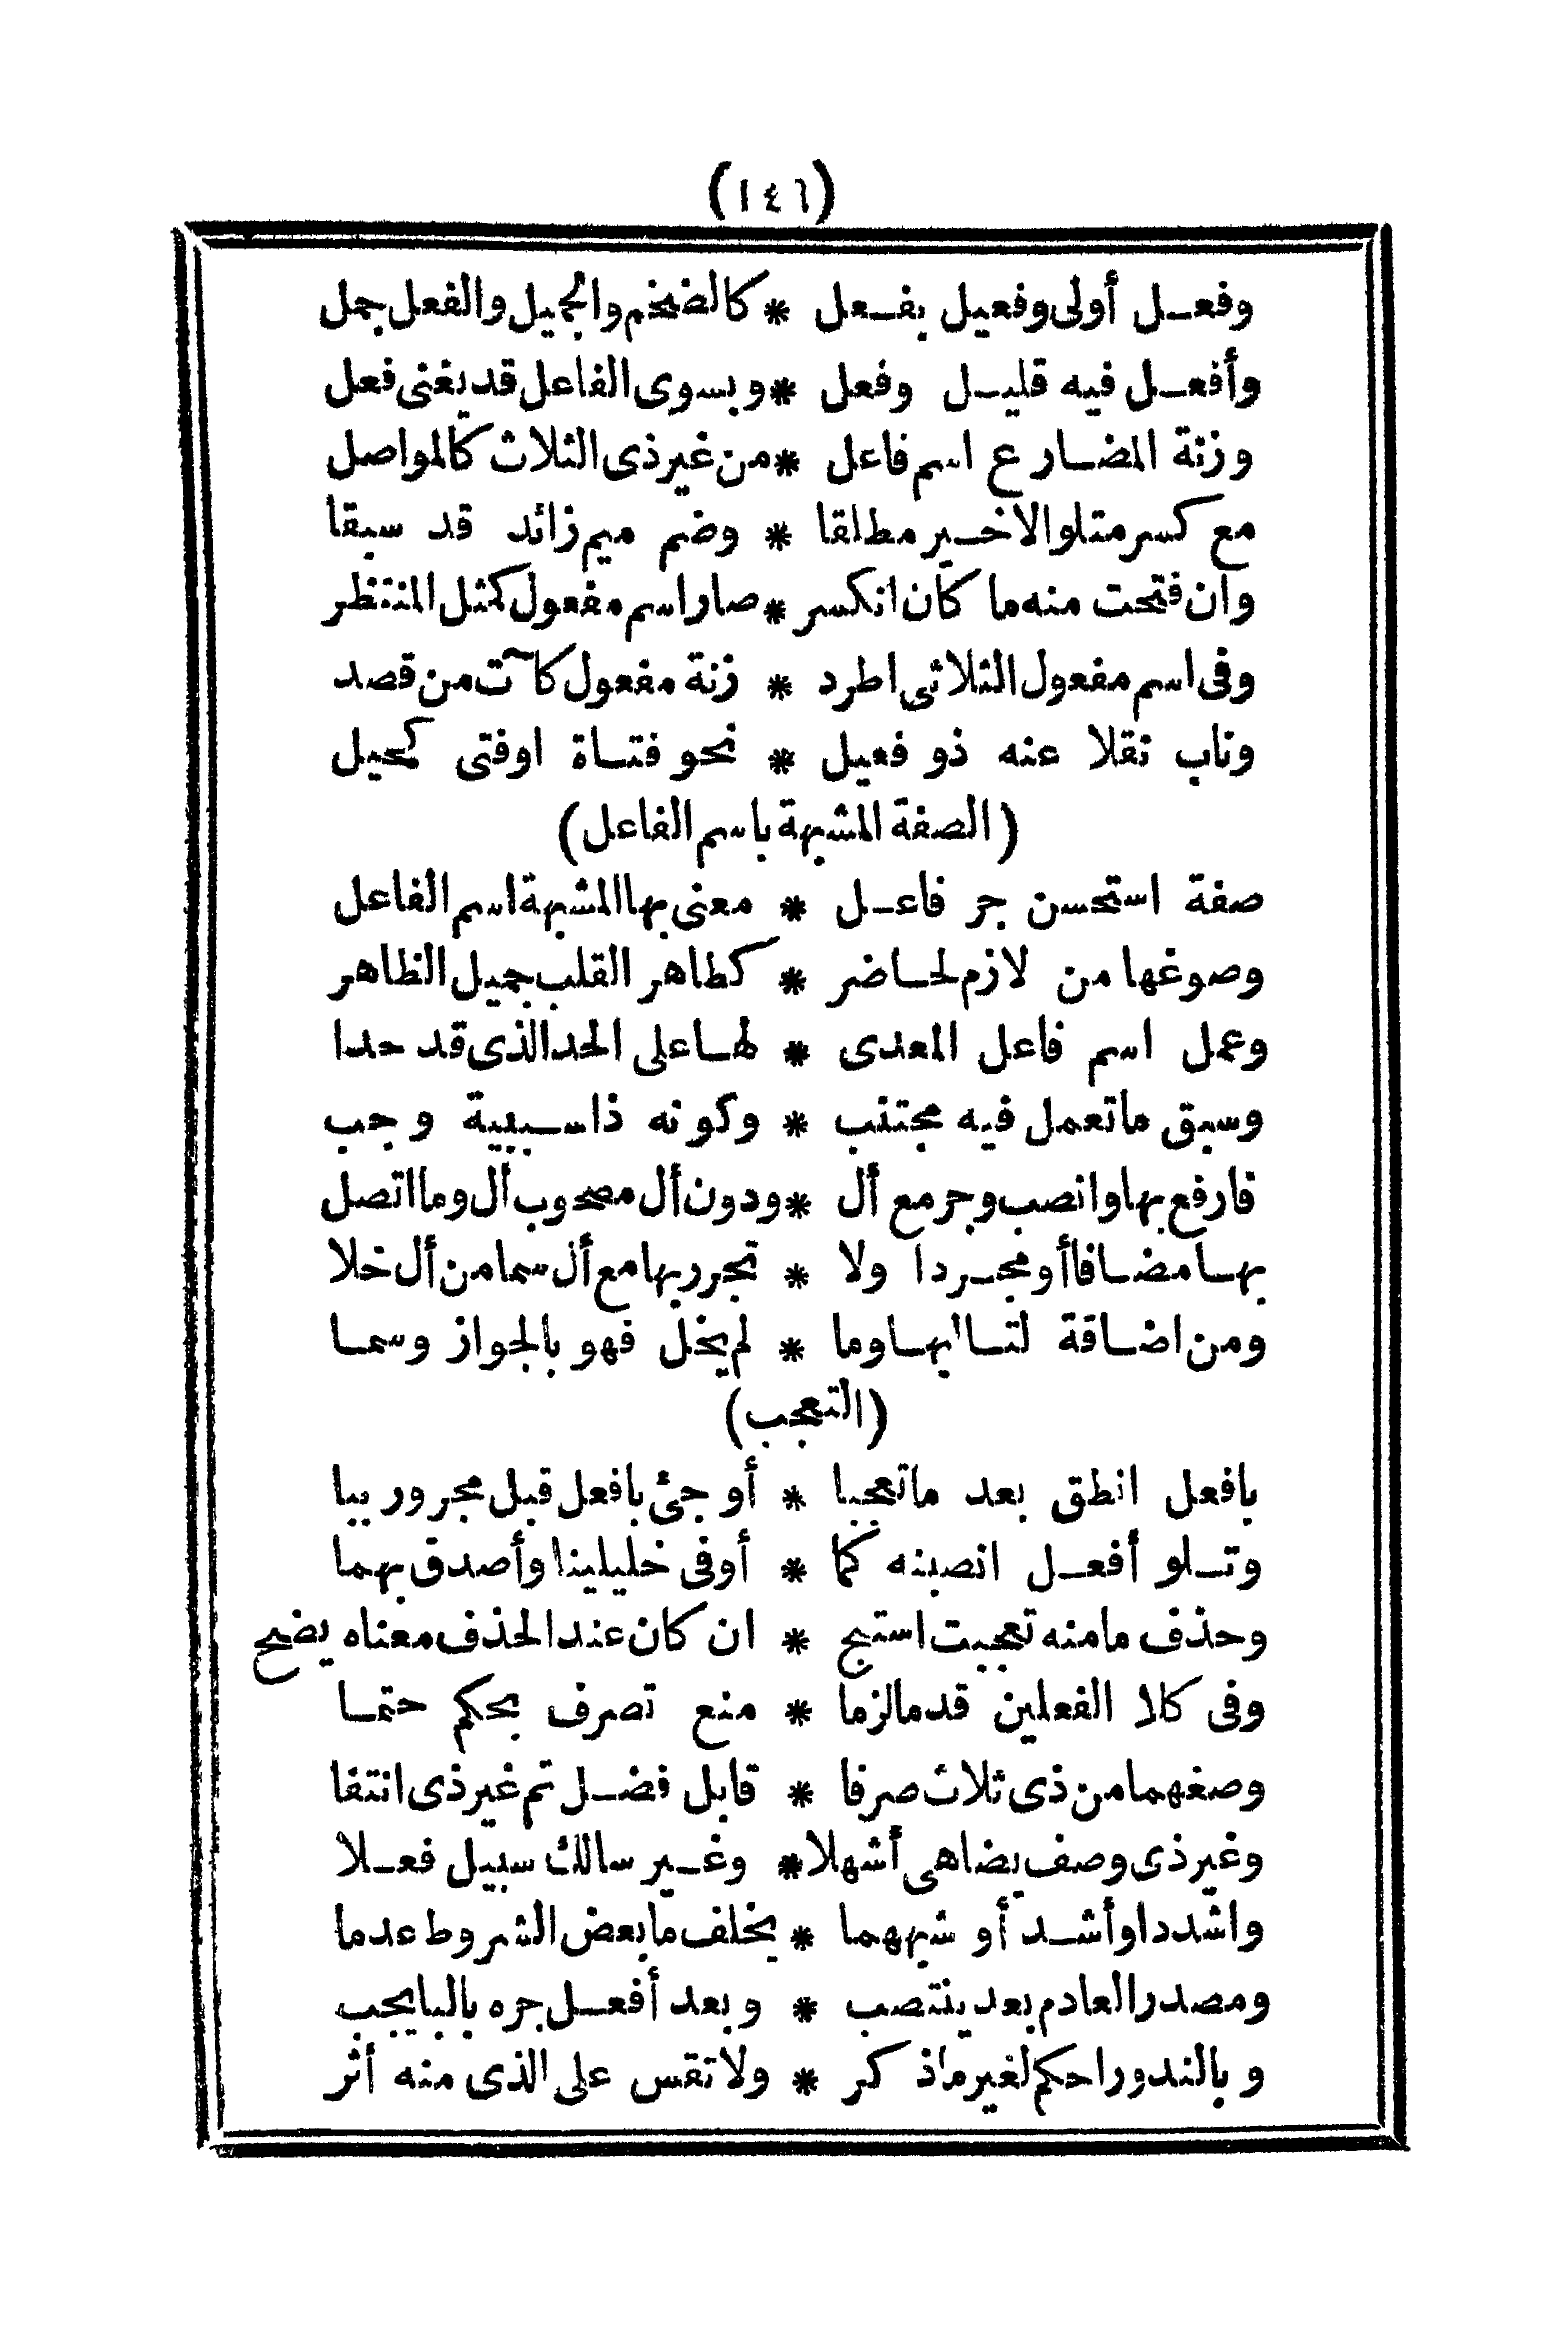 (١٤٦)
وفعل أولى وفعيل بفعل * كالضخم والجميل والفعل جمل
وأفعل فيه قليل وفعل * وبسوى الفاعل قد يغنى فعل
وزنة المضارع اسم فاعل * من غير ذى الثلاث كالمواصل
مع كسر متلو الاخير مطلقا * وضم ميم زائد قد سبقا
وان فتحت منه ما كان انكسر * صار اسم مفعول كمثل المنتظر
وفى اسم مفعول الثلاثى اطرد * زنة مفعول كآت من قصد
وناب نقلا عنه ذو فعيل * نحو فتاة اوفتى كحيل
(الصفة المشبهة باسم الفاعل)
صفة استحسن جر فاعل * معنى بها المشبهة اسم الفاعل
وصوغها من لازم لحاضر * كطاهر القلب جميل الظاهر
وعمل اسم فاعل المعدى * لها على الحد الذى قد حدا
وسبق ما تعمل فيه مجتنب * وكونه ذا سببية وجب
فارفع بها وانصب وجر مع أل * ودون أل مصحوب أل وما اتصل
بها مضافا أو مجردا ولا * تجرر بها مع أل سما من أل خلا
ومن اضافة لتاليها وما * لم يخل فهو بالجواز وسما
(التعجب)
بافعل انطق بعد ما تعجبا * أو جئ بافعل قبل مجرور ببا
وتلو أفعل انصبنه كما * أوفى خليلينا وأصدق بهما
وحذف ما منه تعجبت استبح * ان كان عند الحذف معناه يضح
وفى كلا الفعلين قدما لزما * منع تصرف بحكم حتما
وصغهما من ذى ثلاث صرفا * قابل فضل تم غير ذى انتفا
وغير ذى وصف يضاهى أشهلا * وغير سالك سبيل فعلا
واشدد او أشد أو شبههما * يخلف ما بعض الشروط عدما
ومصدر العادم بعد ينتصب * وبعد أفعل جره بالبا يجب
وبالندور احكم لغير ما ذكر * ولا تقس على الذى منه أثر